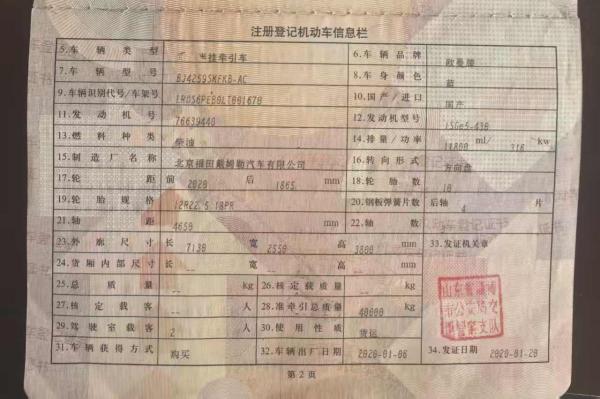 注册登记机动车信息栏
5.车辆类型 半挂牵引车 6.车辆品牌 欧曼牌
7.车辆型号 BJ4259SNFKB-AC 8.车身颜色 蓝
9.车辆识别代号/车架号 10.国产/进口 国产
11.发动机号 76639440 12.发动机型号
13.燃料种类 柴油 14.排量/功率 11800 ml/ 316 kw
15.制造厂名称 北京福田戴姆勒汽车有限公司 16.转向形式 方向盘
17.轮距 前 2020 1865 mm 18.轮胎数 10
19.轮胎规格 12R22.5 18PR 20.钢板弹簧片数 后轴 4 片
21.轴距 4650 mm 22.轴数
23.外廓尺寸 长 7130 宽 2550 高 3800 mm 33.发证机关章
24.货厢内部尺寸 长 -- 宽 -- 高 -- mm
25.总质量 -- kg 26.核定载质量 -- kg
27.核定载客 -- 人 28.准牵引总质量 40000 kg
29.驾驶室载客 2 人 30.使用性质 货运
31.车辆获得方式 购买 32.车辆出厂日期 2020-01-06 34.发证日期 2020-01-20
第2页